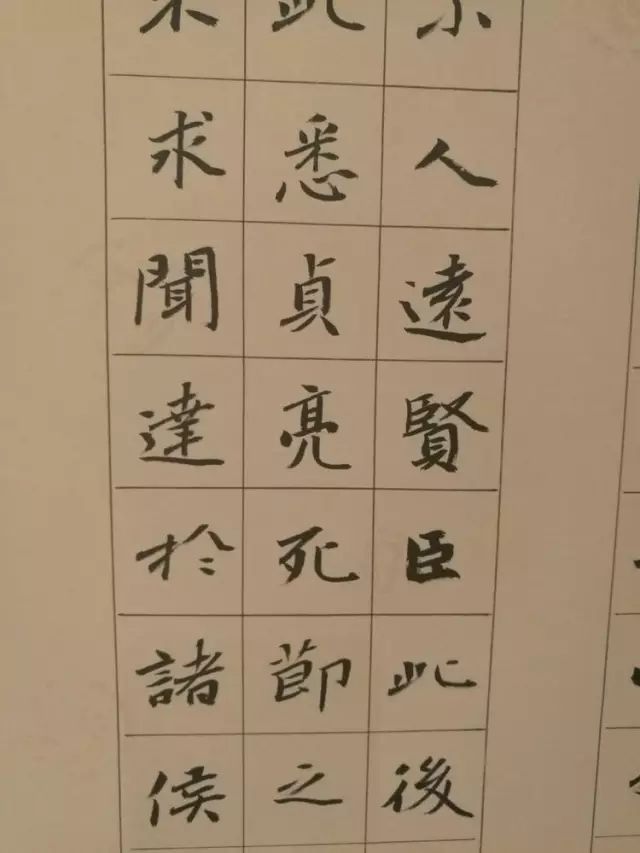 小人遠賢臣此後
此悉貞亮死節之
求聞達於諸侯